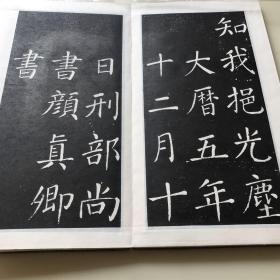 知我挹光塵
大曆五年
十二月十
日刑部尚
書顔真卿
書